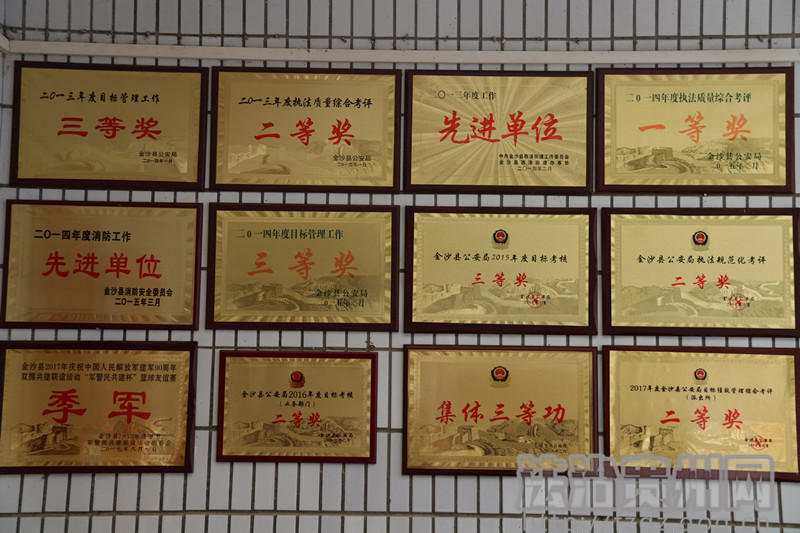 二〇一三年度目标管理工作
三等奖
金沙县公安局
二〇一四年一月
二〇一三年度执法质量综合考评
二等奖
金沙县公安局
二〇一四年一月
二〇一三年度工作
先进单位
二〇一四年二月
二〇一四年度执法质量综合考评
一等奖
金沙县公安局
二〇一四年度消防工作
先进单位
金沙县消防安全委员会
二〇一五年三月
二〇一四年度目标管理工作
三等奖
金沙县公安局
金沙县公安局2015年度目标考核
三等奖
金沙县公安局执法规范化考评
二等奖
金沙县2017年庆祝中国人民解放军建军90周年
双拥共建联谊活动“军警民共建杯”篮球友谊赛
季军
二〇一七年八月一日
金沙县公安局2016年度目标考核
(业务部门)
二等奖
集体三等功
2017年度金沙县公安局目标绩效管理综合考评
(派出所)
二等奖
法治贵州网